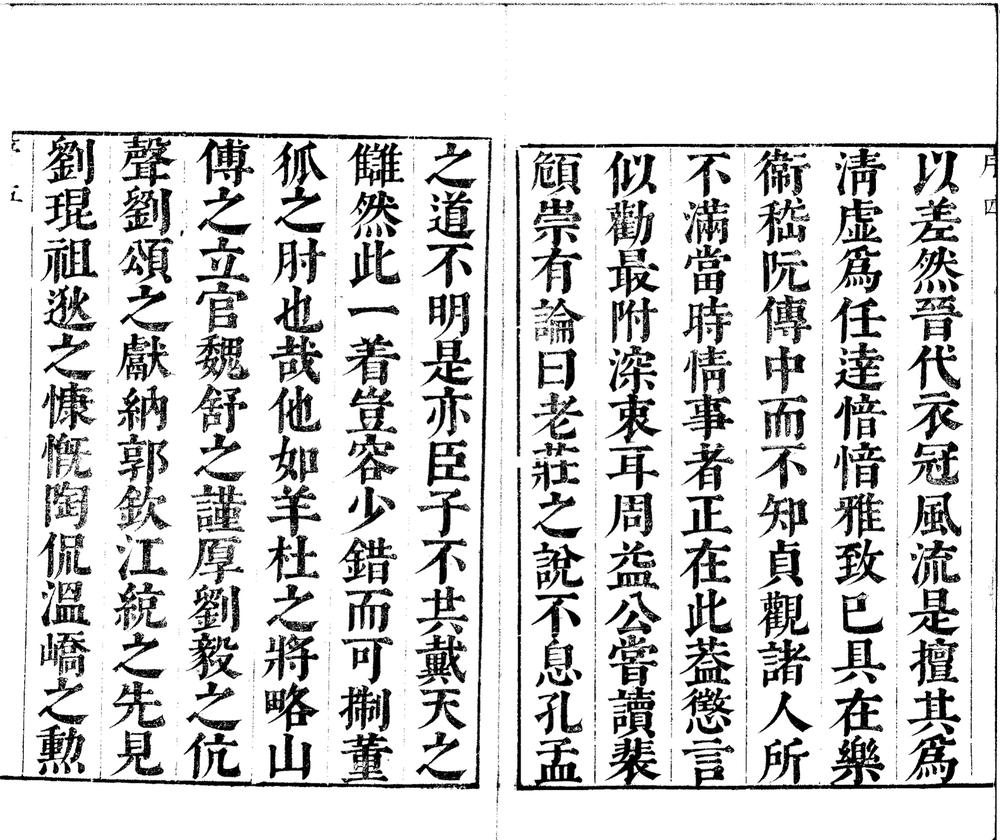 序 四
以差然晉代衣冠風流是擅其爲
淸虚爲任達愔愔雅致已具在樂
衞嵇阮傳中而不知貞觀諸人所
不滿當時情事者正在此葢懲言
似勸最附深衷耳周益公嘗讀裴
頠崇有論曰老莊之說不息孔孟
之道不明是亦臣子不共戴天之
讎然此一着豈容少錯而可掣董
狐之肘也哉他如羊杜之將略山
傅之立官魏舒之謹厚劉毅之伉
聲劉頌之獻納郭欽江統之先見
劉琨祖逖之慷慨陶侃溫嶠之勲
五